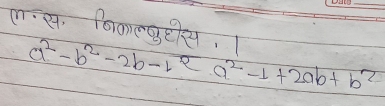 ल. स. निकाल्नुहोस् . |
a² - b² - 2b - 1² a² - 1 + 2ab + b²